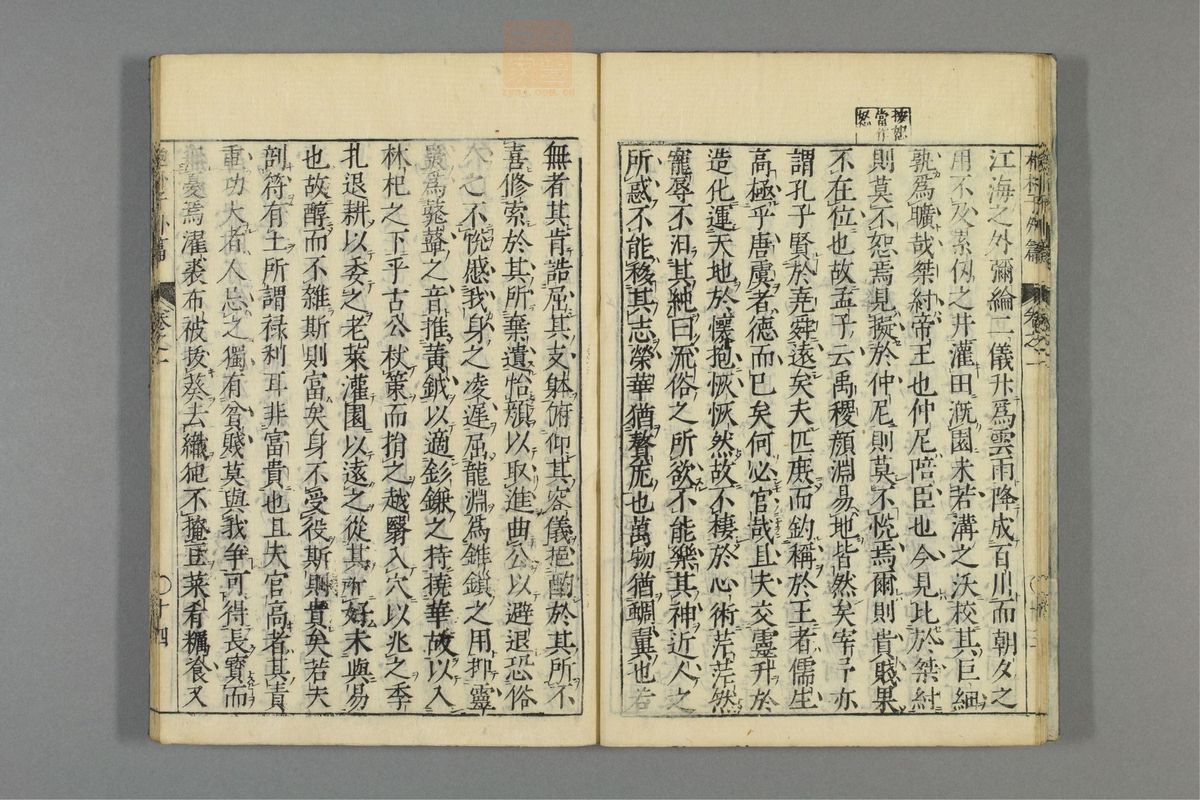 按恕
當作
怒
江海之外彌綸二儀升爲雲雨降成百川而朝夕之
用不及累仞之井灌田漑園未若溝之沃校其巨細
孰爲曠哉桀紂帝王也仲尼陪臣也今見比於桀紂
則莫不怒焉見擬於仲尼則莫不悅焉爾則貴賤果
不在位也故孟子云禹稷顔淵易地皆然矣宰予亦
謂孔子賢於堯舜遠矣夫匹庶而鈞稱於王者儒生
高極乎唐虞者德而已矣何必官哉且夫交靈升於
造化運天地於懷抱恢恢然故不棲於心術茫茫然
寵辱不汨其純白流俗之所欲不能樂其神近人之
所惑不能移其志榮華猶贅疣也萬物猶蜩翼也若
無者其肯詰屈其支躰俯仰其容儀挹酌於其所不
喜修索於其所棄遺怡顔以取進曲公以避退恐俗
人之不悅慼我身之凌遲屈龍淵爲錐鎖之用抑靈
鼖爲鼗鞞之音推黃鉞以適釤鎌之持撓華旗以入
林杞之下乎古公杖策而捎之越翳入穴以兆之季
札退耕以委之老萊灌園以遠之從其所好未與易
也故醇而不雜斯則富矣身不受役斯則貴矣若夫
剖符有土所謂祿利耳非富貴也且夫官高者其責
重功大者人忌之獨有貧賤莫與我爭可得長寶而
無憂焉濯裘布被拔葵去織㐌不掩豆菜肴糲飡又
卷之一
十四